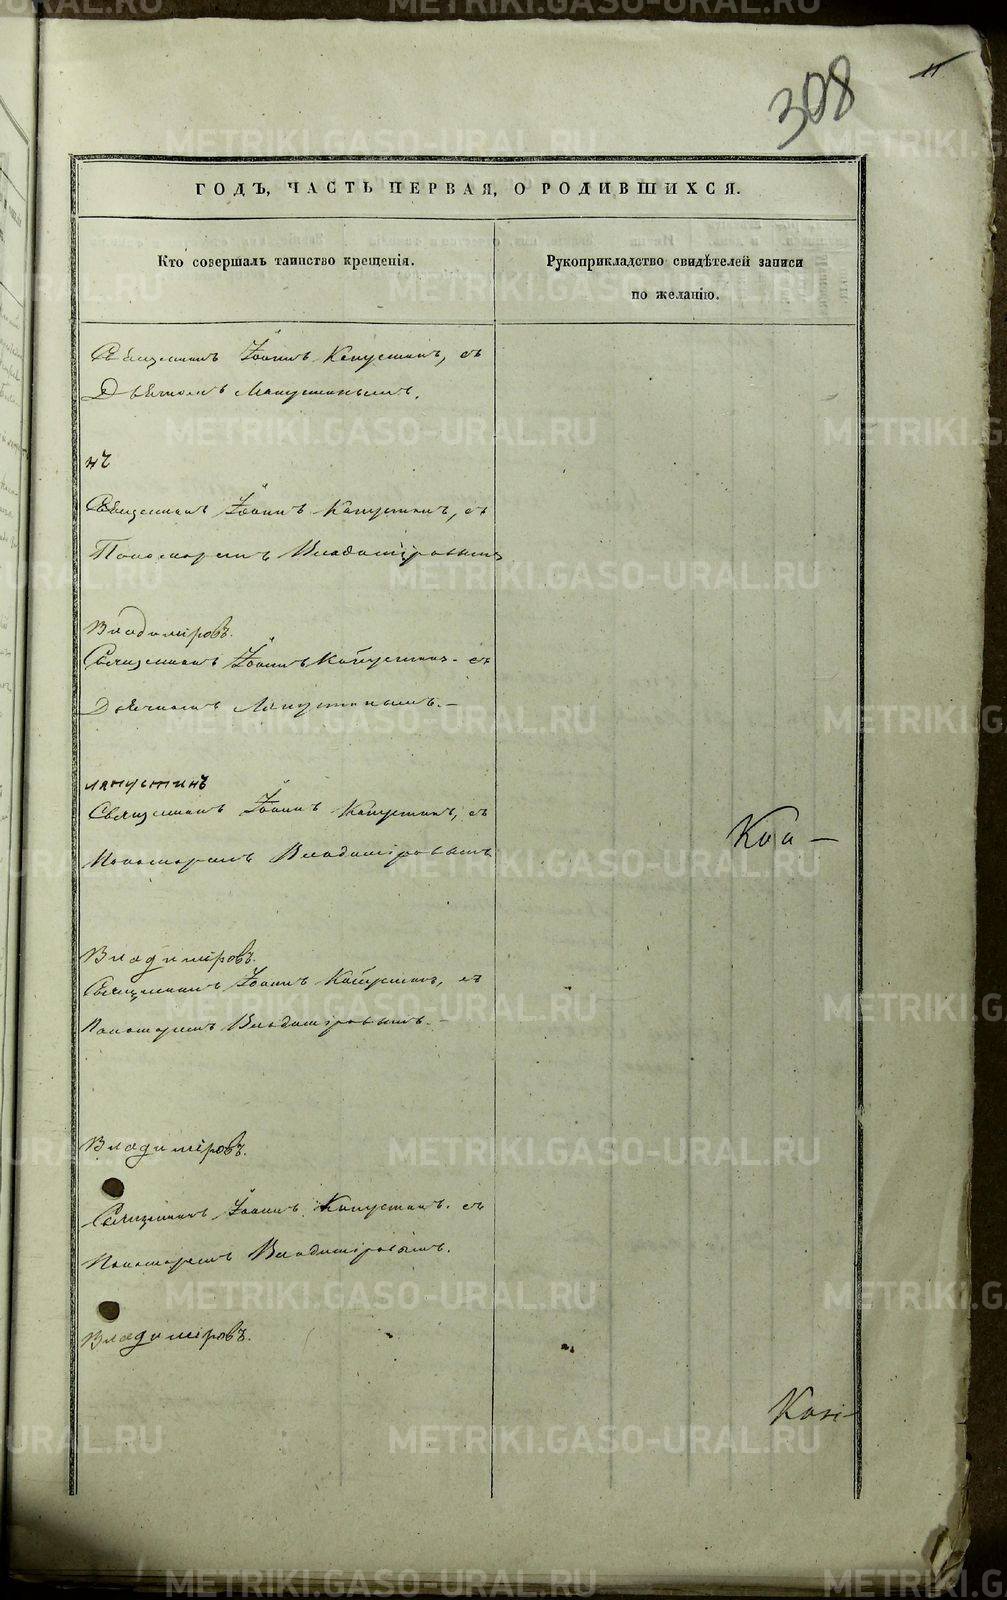 308
11
ГОДЪ, ЧАСТЬ ПЕРВАЯ, О РОДИВШИХСЯ.
Кто совершалъ таинство крещенія.
Рукоприкладство свидѣтелей записи
по желанію.
Священникъ Іоаннъ Капустинъ, съ
Дьячкомъ Ляпустинымъ.
нъ
Священникъ Іоаннъ Капустинъ, съ
Пономаремъ Владиміровымъ
Владиміровъ.
Священникъ Іоаннъ Капустинъ - съ
Дьячкомъ Ляпустинымъ. -
ляпустинъ
Священникъ Іоаннъ Капустинъ, съ
Пономаремъ Владиміровымъ
Владиміровъ.
Священникъ Іоаннъ Капустинъ, съ
Пономаремъ Владиміровымъ. -
Владиміровъ.
Священникъ Іоаннъ Капустинъ. съ
Пономаремъ Владиміровымъ.
Владиміровъ.
METRIKI.GASO-URAL.RU